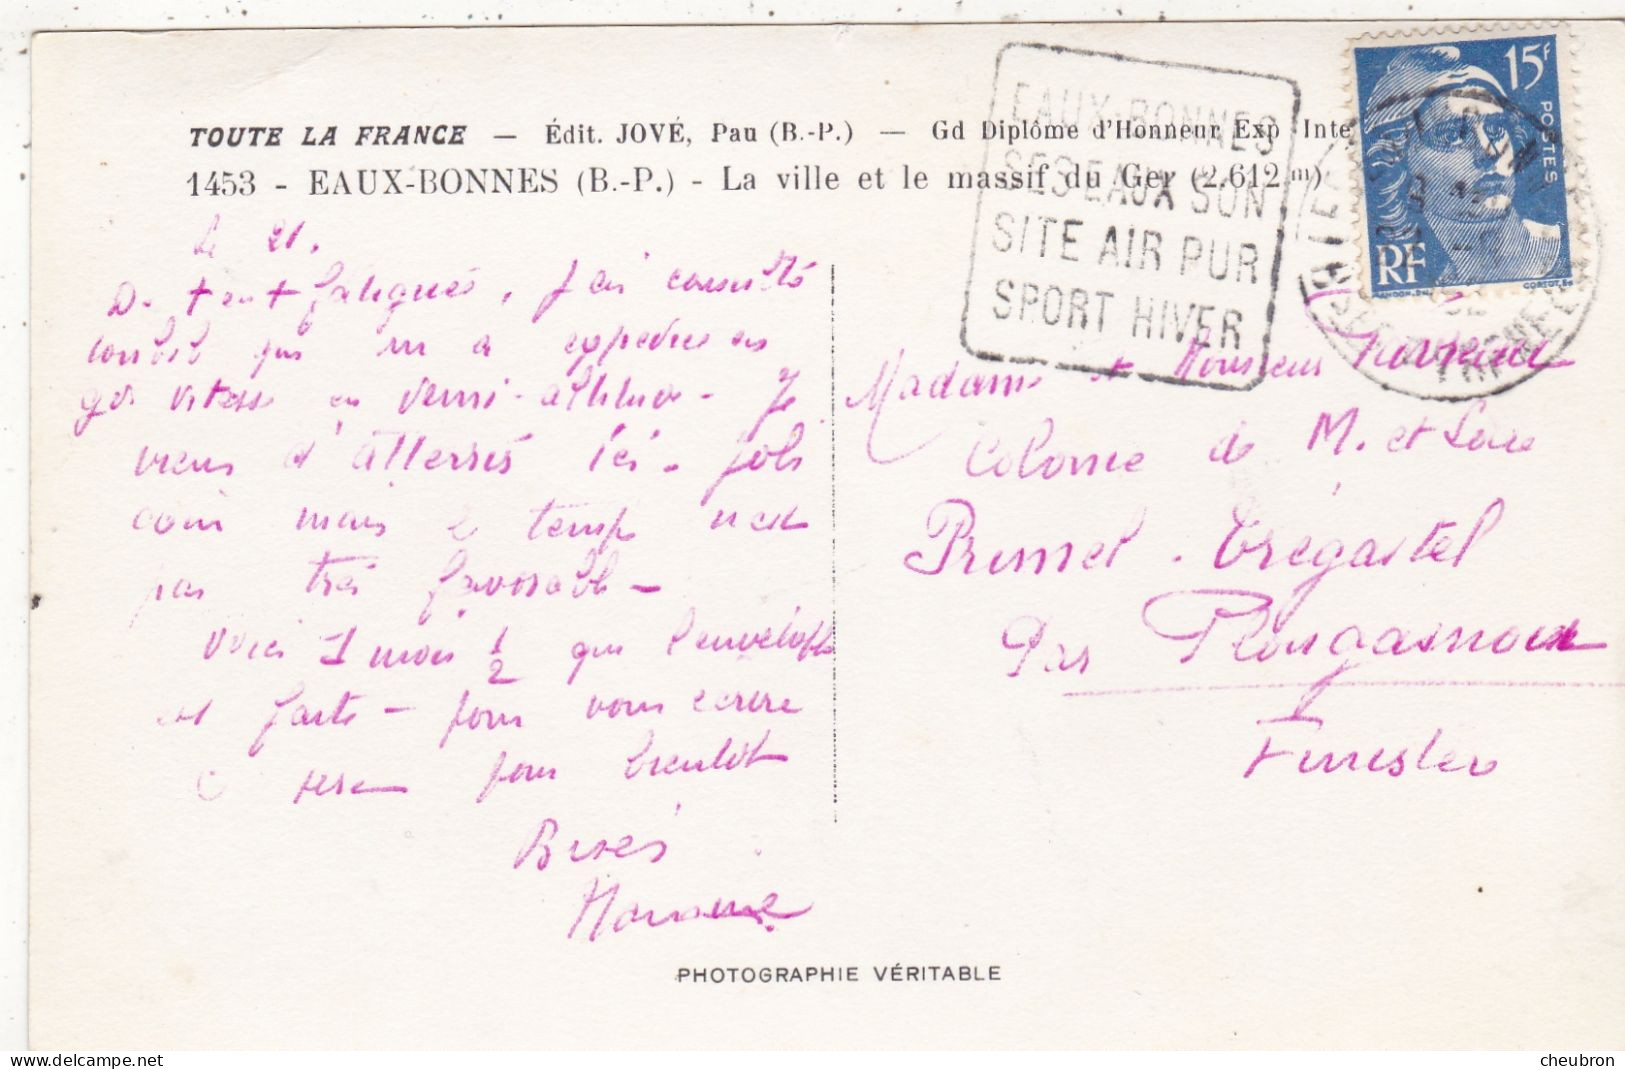 TOUTE LA FRANCE — Édit. JOVÉ, Pau (B.-P.) — Gd Diplôme d'Honneur Exp Inte
1453 - EAUX-BONNES (B.-P.) - La ville et le massif du Ger (2.612 m)
EAUX-BONNES
SES EAUX SON
SITE AIR PUR
SPORT HIVER
15F
POSTES
RF
Le 21.
fatigués, j'ai consulté
qui m'a expédié en
gde vitesse en demi-altitude - Je
viens d'atterrir ici - joli
coin mais le temps n'est
pas très favorable -
Voici 1 mois 1/2 que l'enveloppe
est faite - pour vous écrire
ce sera pour bientôt
Bises
Madame et Monsieur
Colonie de M. et Loire
Primel - Trégastel
Par Plougasnou
Finistère
PHOTOGRAPHIE VÉRITABLE
www.delcampe.net
cheubron